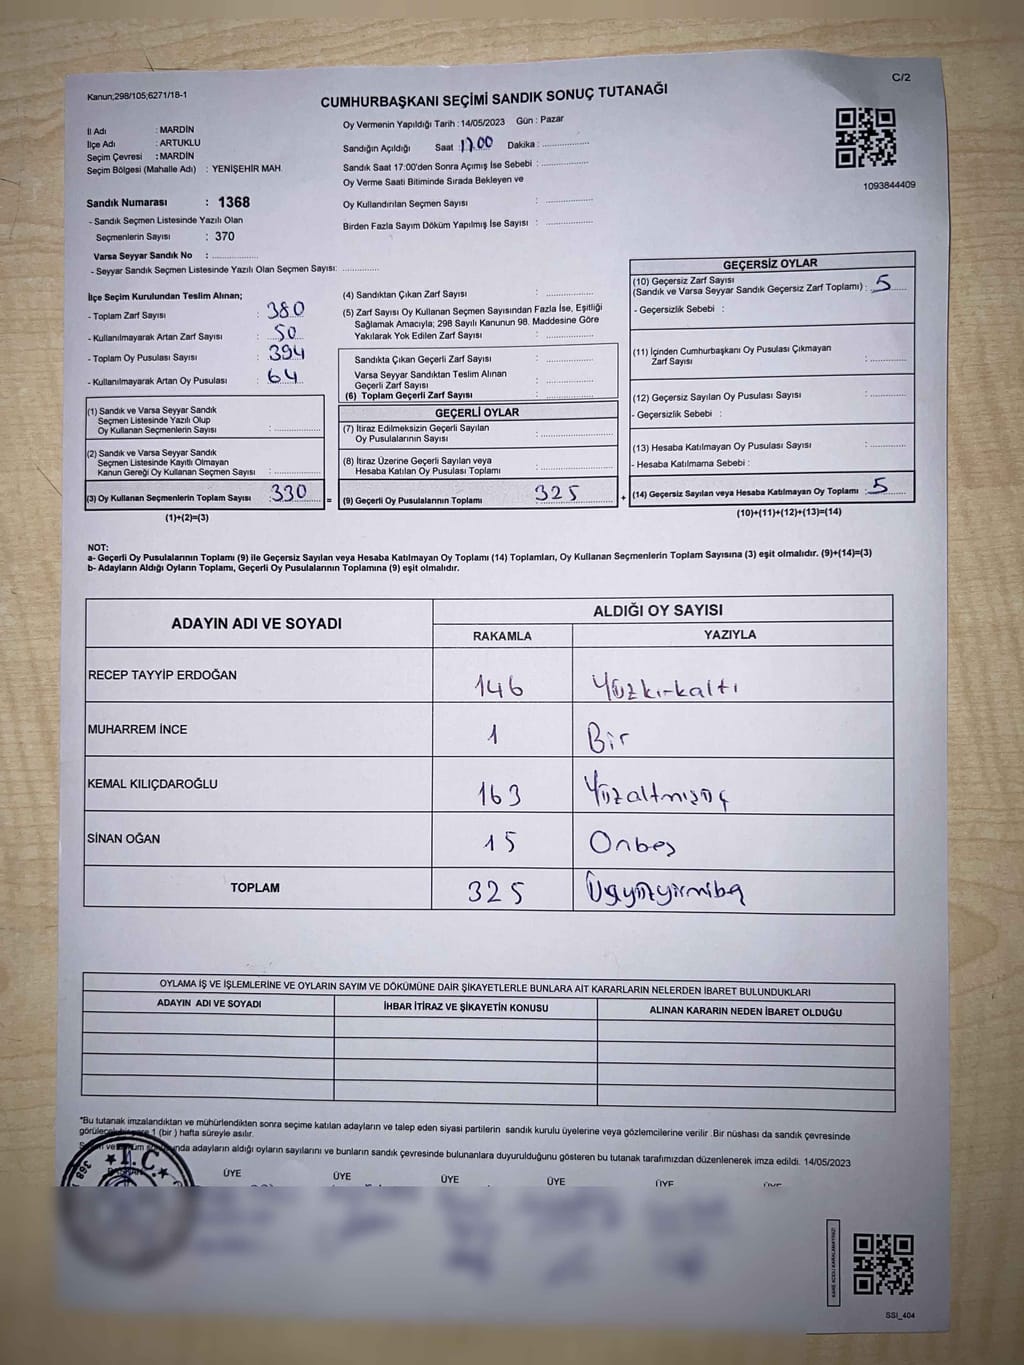 C/2
Kanun;298/105;6271/18-1
CUMHURBAŞKANI SEÇİMİ SANDIK SONUÇ TUTANAĞI
İl Adı : MARDİN
İlçe Adı : ARTUKLU
Seçim Çevresi : MARDİN
Seçim Bölgesi (Mahalle Adı) : YENİŞEHİR MAH.
Oy Vermenin Yapıldığı Tarih : 14/05/2023 Gün : Pazar
Sandığın Açıldığı Saat : 17.00 Dakika : ................
Sandık Saat 17:00'den Sonra Açımış İse Sebebi : ................
Oy Verme Saati Bitiminde Sırada Bekleyen ve
Oy Kullandırılan Seçmen Sayısı : ................
Birden Fazla Sayım Döküm Yapılmış İse Sayısı : ................
1093844409
Sandık Numarası : 1368
- Sandık Seçmen Listesinde Yazılı Olan
Seçmenlerin Sayısı : 370
Varsa Seyyar Sandık No : ................
- Seyyar Sandık Seçmen Listesinde Yazılı Olan Seçmen Sayısı: .............
İlçe Seçim Kurulundan Teslim Alınan;
- Toplam Zarf Sayısı : 380
- Kullanılmayarak Artan Zarf Sayısı : 50
- Toplam Oy Pusulası Sayısı : 394
- Kullanılmayarak Artan Oy Pusulası : 64
(1) Sandık ve Varsa Seyyar Sandık
Seçmen Listesinde Yazılı Olup
Oy Kullanan Seçmenlerin Sayısı : ................
(2) Sandık ve Varsa Seyyar Sandık
Seçmen Listesinde Kayıtlı Olmayan
Kanun Gereği Oy Kullanan Seçmen Sayısı : ................
(3) Oy Kullanan Seçmenlerin Toplam Sayısı : 330 =
(1)+(2)=(3)
(4) Sandıktan Çıkan Zarf Sayısı : ................
(5) Zarf Sayısı Oy Kullanan Seçmen Sayısından Fazla İse, Eşitliği
Sağlamak Amacıyla; 298 Sayılı Kanunun 98. Maddesine Göre
Yakılarak Yok Edilen Zarf Sayısı : ................
Sandıkta Çıkan Geçerli Zarf Sayısı : ................
Varsa Seyyar Sandıktan Teslim Alınan
Geçerli Zarf Sayısı : ................
(6) Toplam Geçerli Zarf Sayısı : ................
GEÇERLİ OYLAR
(7) İtiraz Edilmeksizin Geçerli Sayılan
Oy Pusulalarının Sayısı : ................
(8) İtiraz Üzerine Geçerli Sayılan veya
Hesaba Katılan Oy Pusulası Toplamı : ................
(9) Geçerli Oy Pusulalarının Toplamı 325 +
GEÇERSİZ OYLAR
(10) Geçersiz Zarf Sayısı
(Sandık ve Varsa Seyyar Sandık Geçersiz Zarf Toplamı) : 5
- Geçersizlik Sebebi :
(11) İçinden Cumhurbaşkanı Oy Pusulası Çıkmayan
Zarf Sayısı : ................
(12) Geçersiz Sayılan Oy Pusulası Sayısı : ................
- Geçersizlik Sebebi :
(13) Hesaba Katılmayan Oy Pusulası Sayısı : ................
- Hesaba Katılmama Sebebi :
(14) Geçersiz Sayılan veya Hesaba Katılmayan Oy Toplamı : 5
(10)+(11)+(12)+(13)=(14)
NOT:
a- Geçerli Oy Pusulalarının Toplamı (9) ile Geçersiz Sayılan veya Hesaba Katılmayan Oy Toplamı (14) Toplamları, Oy Kullanan Seçmenlerin Toplam Sayısına (3) eşit olmalıdır. (9)+(14)=(3)
b- Adayların Aldığı Oyların Toplamı, Geçerli Oy Pusulalarının Toplamına (9) eşit olmalıdır.
ADAYIN ADI VE SOYADI ALDIĞI OY SAYISI
RAKAMLA YAZIYLA
RECEP TAYYİP ERDOĞAN 146 Yüzkırkaltı
MUHARREM İNCE 1 Bir
KEMAL KILIÇDAROĞLU 163 Yüzaltmışüç
SİNAN OĞAN 15 Onbeş
TOPLAM 325 Üçyüzyirmibeş
OYLAMA İŞ VE İŞLEMLERİNE VE OYLARIN SAYIM VE DÖKÜMÜNE DAİR ŞİKAYETLERLE BUNLARA AİT KARARLARIN NELERDEN İBARET BULUNDUKLARI
ADAYIN ADI VE SOYADI İHBAR İTİRAZ VE ŞİKAYETİN KONUSU ALINAN KARARIN NEDEN İBARET OLDUĞU
*Bu tutanak imzalandıktan ve mühürlendikten sonra seçime katılan adayların ve talep eden siyasi partilerin sandık kurulu üyelerine veya gözlemcilerine verilir .Bir nüshası da sandık çevresinde
görülecek bir yere 1 (bir ) hafta süreyle asılır.
adayların aldığı oyların sayılarını ve bunların sandık çevresinde bulunanlara duyurulduğunu gösteren bu tutanak tarafımızdan düzenlenerek imza edildi. 14/05/2023
T.C.
ÜYE ÜYE ÜYE ÜYE ÜYE
SSI_404